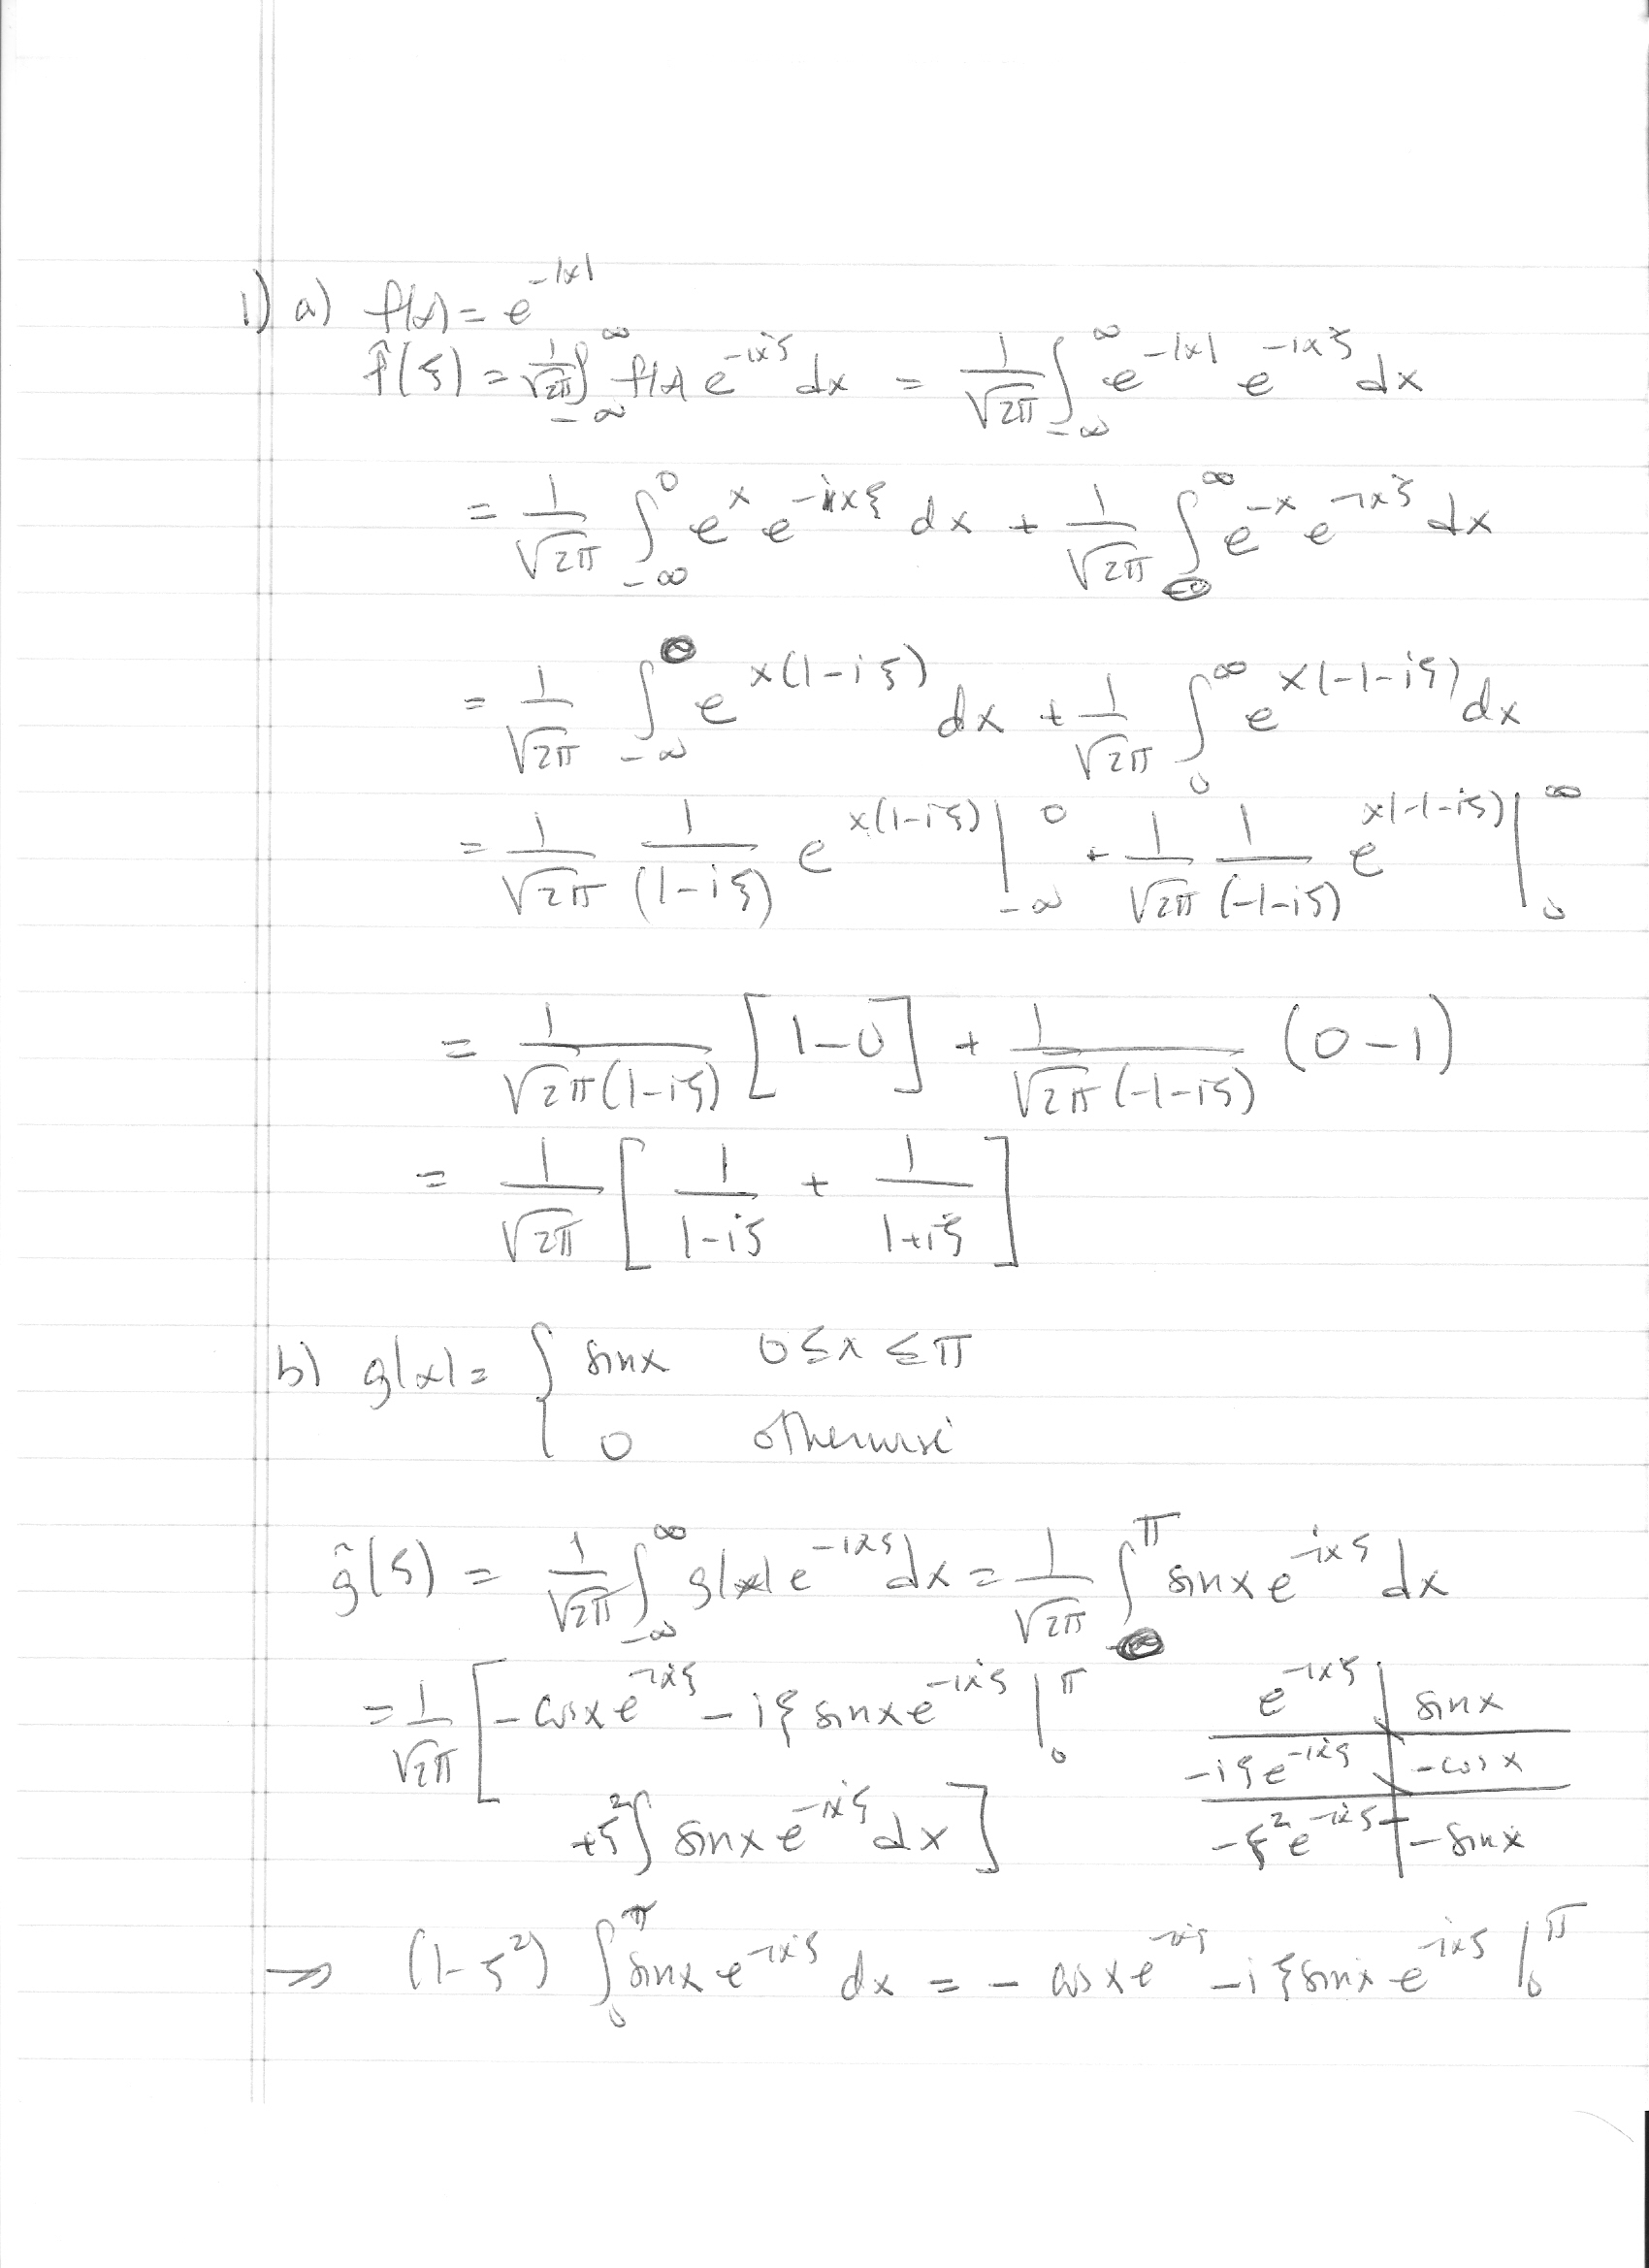 1) a) f(x) = e^{-|x|}
f̂(ξ) = 1/√2π ∫_{-∞}^{∞} f(x) e^{-ixξ} dx = 1/√2π ∫_{-∞}^{∞} e^{-|x|} e^{-ixξ} dx
= 1/√2π ∫_{-∞}^{0} e^{x} e^{-ixξ} dx + 1/√2π ∫_{0}^{∞} e^{-x} e^{-ixξ} dx
= 1/√2π ∫_{-∞}^{0} e^{x(1-iξ)} dx + 1/√2π ∫_{0}^{∞} e^{x(-1-iξ)} dx
= 1/√2π 1/(1-iξ) e^{x(1-iξ)} |_{-∞}^{0} + 1/√2π 1/(-1-iξ) e^{x(-1-iξ)} |_{0}^{∞}
= 1/(√2π(1-iξ)) [1-0] + 1/(√2π(-1-iξ)) (0-1)
= 1/√2π [ 1/(1-iξ) + 1/(1+iξ) ]
b) g(x) = { sinx 0≤x≤π
0 otherwise
ĝ(ξ) = 1/√2π ∫_{-∞}^{∞} g(x) e^{-ixξ} dx = 1/√2π ∫_{0}^{π} sinx e^{-ixξ} dx
= 1/√2π [ -cosx e^{-ixξ} - iξ sinx e^{-ixξ} |_{0}^{π}
+ξ² ∫ sinx e^{-ixξ} dx ]
e^{-ixξ} | sinx
-iξe^{-ixξ} | -cosx
-ξ²e^{-ixξ} | -sinx
⇒ (1-ξ²) ∫_{0}^{π} sinx e^{-ixξ} dx = -cosx e^{-ixξ} -iξ sinx e^{-ixξ} |_{0}^{π}